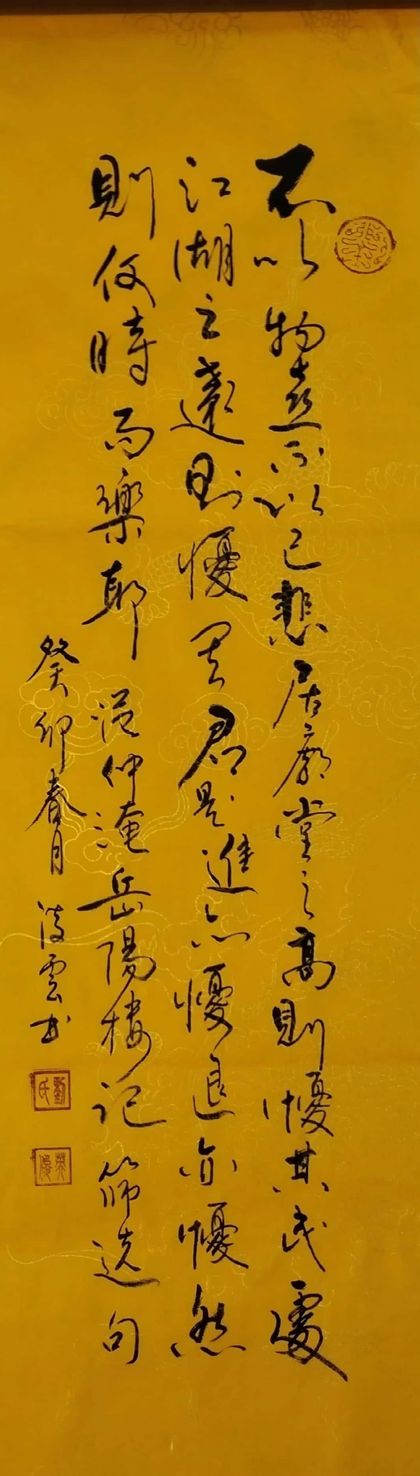 不以物喜不以己悲居廟堂之高則懮其民處
江湖之遠則懮其君是進亦懮退亦懮然
則何時而樂耶 范仲淹岳陽樓記篩选句
癸卯春月凌雲书
劉氏